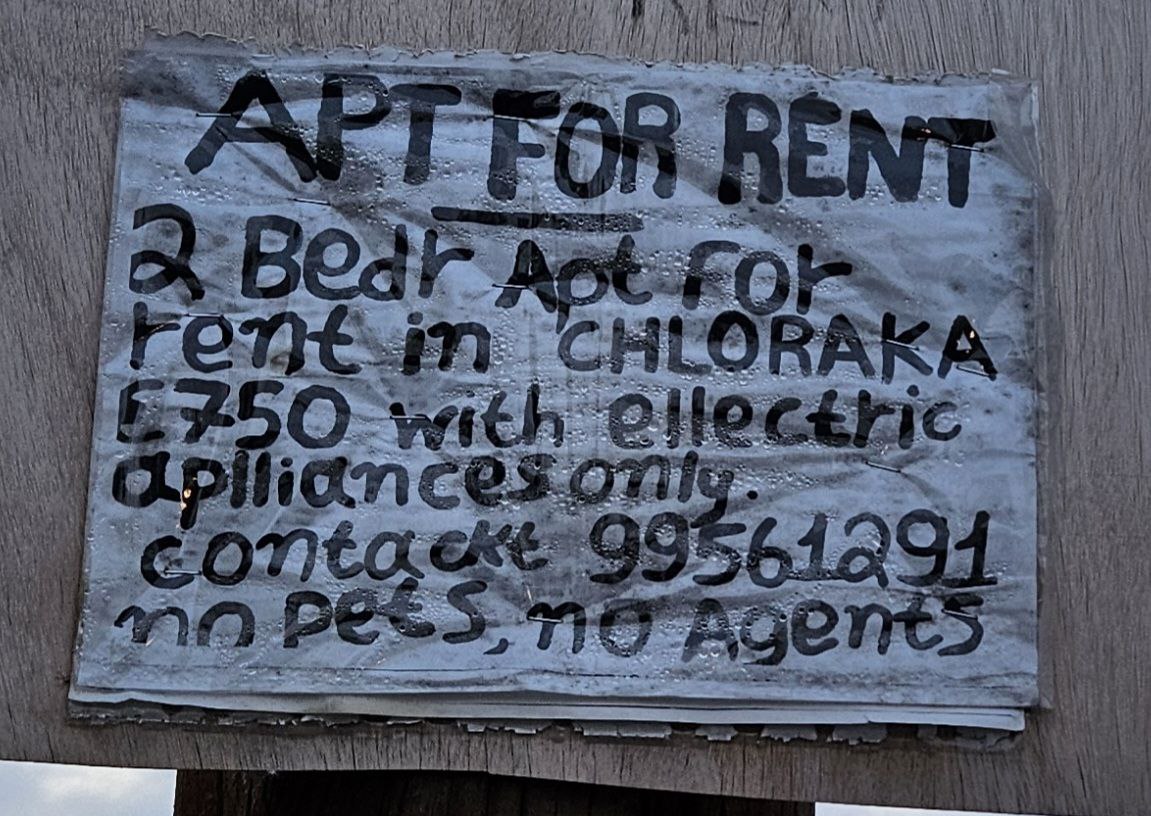 APT FOR RENT
2 Bedr Apt For
rent in CHLORAKA
£750 with ellectric
aplliances only.
contackt 99561291
no pets, no Agents